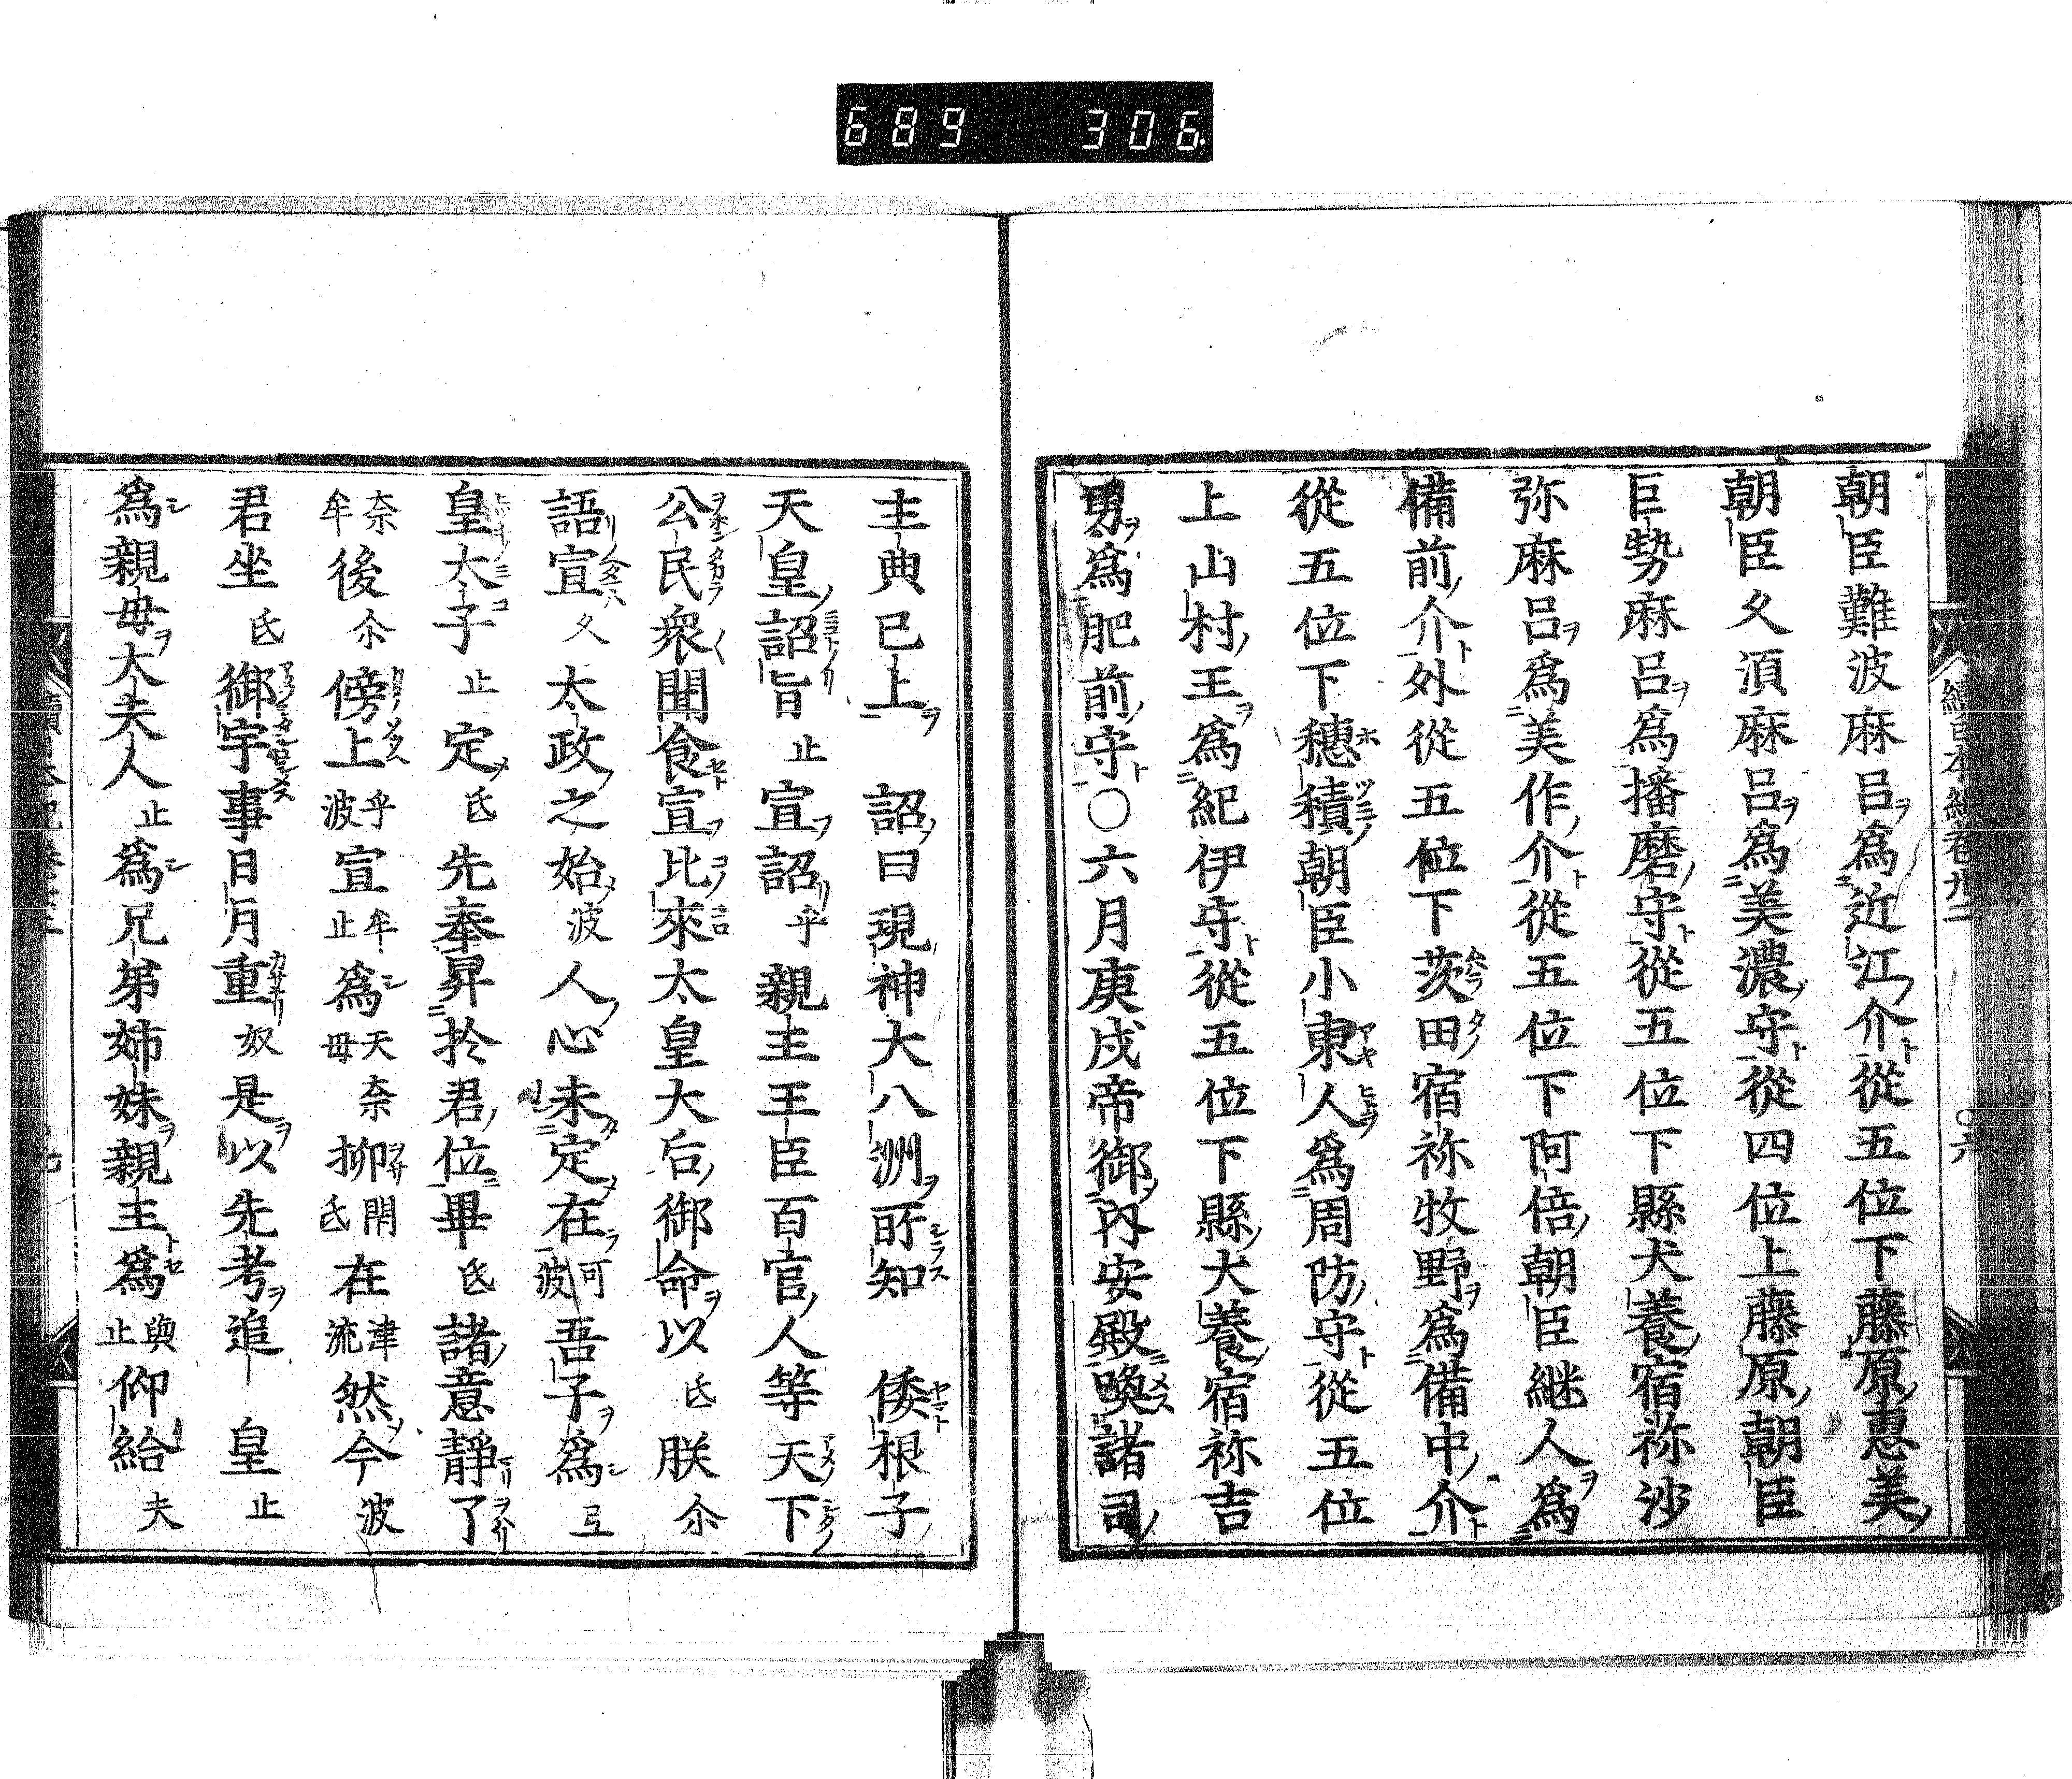 689 306
朝臣難波麻呂爲近江介從五位下藤原惠美
朝臣久須麻呂爲美濃守從四位上藤原朝臣
巨勢麻呂爲播磨守從五位下縣犬養宿祢沙
弥麻呂爲美作介從五位下阿倍朝臣継人爲
備前介外從五位下茨田宿祢牧野爲備中介
從五位下穗積朝臣小東人爲周防守從五位
上山村王爲紀伊守從五位下縣犬養宿祢吉
男爲肥前守○六月庚戌帝御內安殿喚諸司
主典已上 詔曰現神大八洲所知 倭根子
天皇詔旨止宣詔乎親王王臣百官人等天下
公民衆聞食宣比來太皇大后御命以氐朕尒
語宣久太政之始波人心未定在可波吾子爲弖
皇太子止定氐先奉昇於君位畢氐諸意靜了
奈牟後尒傍上乎波宣牟止爲天奈毋抑閇氐在津流然今波
君坐氐御宇事日月重奴是以先考追 皇止
爲親母大夫人止爲兄弟姉妹親王爲與止仰給夫